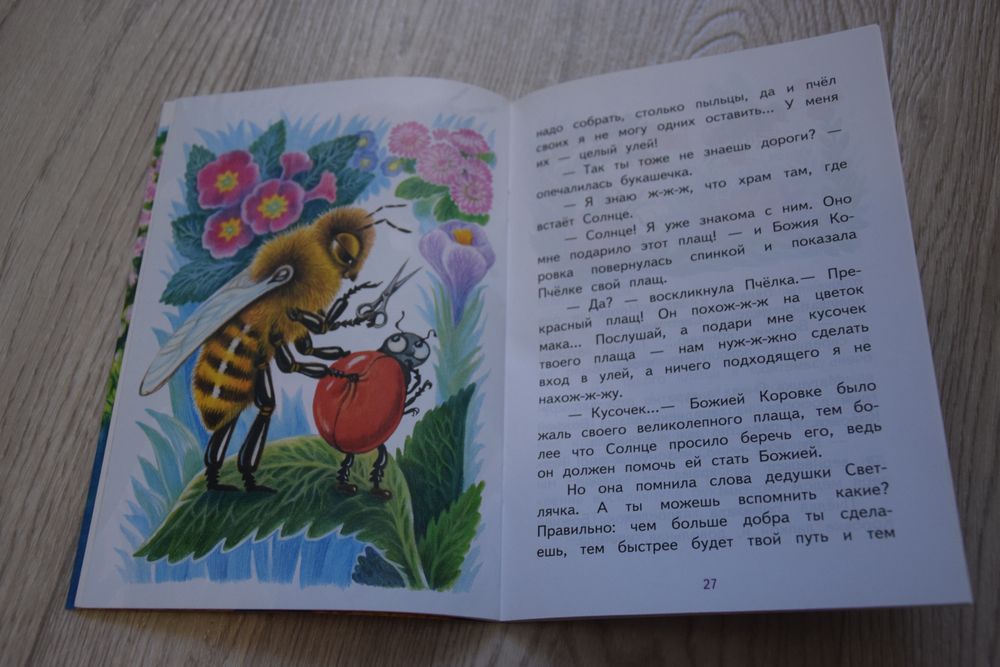 надо собрать, столько пыльцы, да и пчёл
своих я не могу одних оставить... У меня
их — целый улей!
— Так ты тоже не знаешь дороги? —
опечалилась букашечка.
— Я знаю ж-ж-ж, что храм там, где
встаёт Солнце.
— Солнце! Я уже знакома с ним. Оно
мне подарило этот плащ! — и Божия Ко-
ровка повернулась спинкой и показала
Пчёлке свой плащ.
— Да? — воскликнула Пчёлка.— Пре-
красный плащ! Он похож-ж-ж на цветок
мака... Послушай, а подари мне кусочек
твоего плаща — нам нуж-ж-жно сделать
вход в улей, а ничего подходящего я не
нахож-ж-жу.
— Кусочек...— Божией Коровке было
жаль своего великолепного плаща, тем бо-
лее что Солнце просило беречь его, ведь
он должен помочь ей стать Божией.
Но она помнила слова дедушки Свет-
лячка. А ты можешь вспомнить какие?
Правильно: чем больше добра ты сдела-
ешь, тем быстрее будет твой путь и тем
27